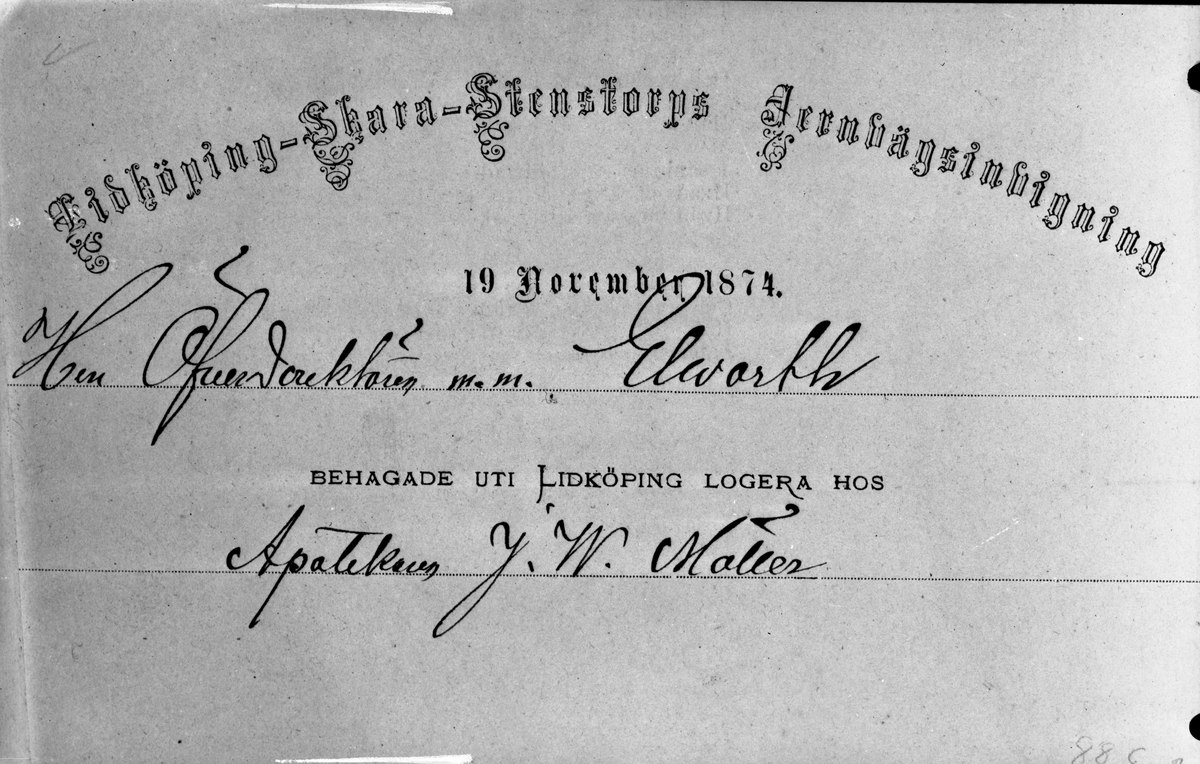 Lidköping-Skara-Stenstorps Jernvägsinvigning
19 November 1874.
Herr Öfverdirektören m.m. Elworth
BEHAGADE UTI LIDKÖPING LOGERA HOS
Apotekaren J. W. Möller
88